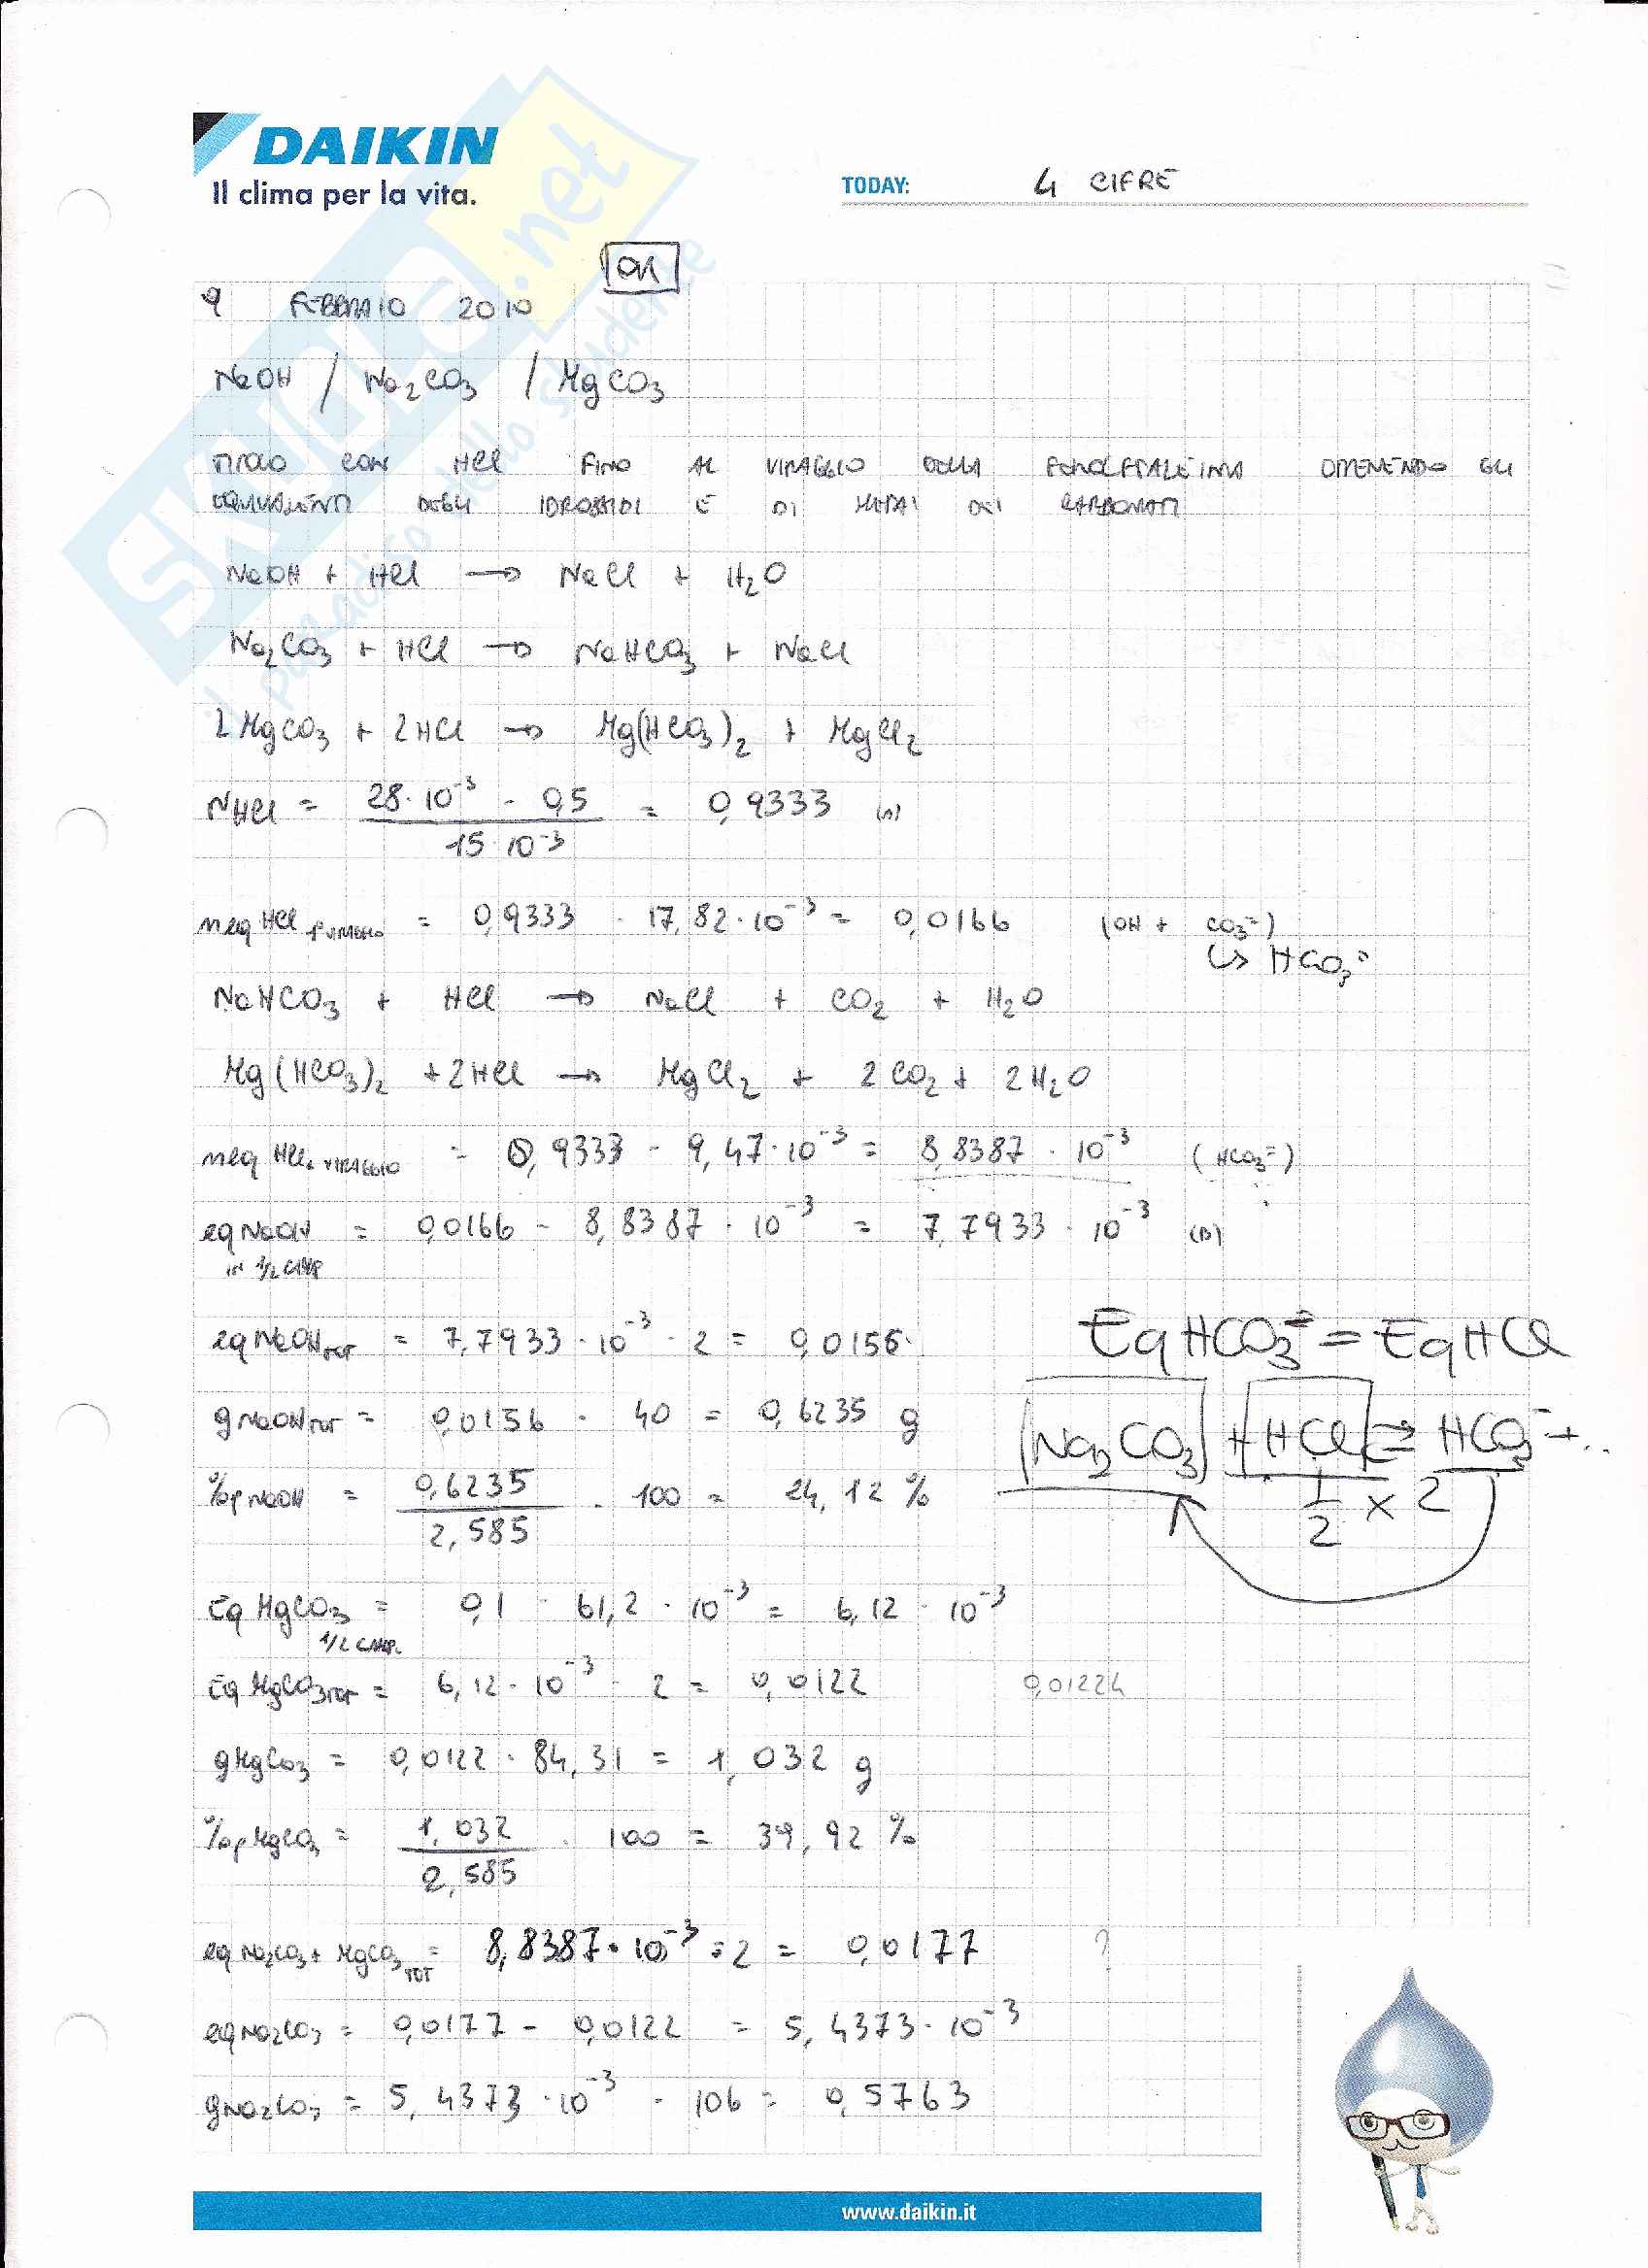 DAIKIN
Il clima per la vita.
TODAY: 4 CIFRE
SKUOLA.net
il paradiso dello studente
9 FEBBRAIO 2010
NaOH / Na2CO3 / MgCO3
TITOLO CON HCl FINO AL VIRAGGIO DELLA FENOLFTALEINA OTTENENDO GLI
EQUIVALENTI DEGLI IDROSSIDI E DI METAI DEI CARBONATI
NaOH + HCl → NaCl + H2O
Na2CO3 + HCl → NaHCO3 + NaCl
2MgCO3 + 2HCl → Mg(HCO3)2 + MgCl2
NHCl = 28·10⁻³ · 0,5 / 15·10⁻³ = 0,9333 (N)
neq HCl 1° VIRAGGIO = 0,9333 · 17,82·10⁻³ = 0,0166 (OH + CO3⁼)
↳ HCO3⁼
NaHCO3 + HCl → NaCl + CO2 + H2O
Mg(HCO3)2 + 2HCl → MgCl2 + 2CO2 + 2H2O
neq HCl VIRAGGIO = 0,9333 · 9,47·10⁻³ = 8,8387·10⁻³ (HCO3⁼)
eq NaOH = 0,0166 - 8,8387·10⁻³ = 7,7933·10⁻³
IN 1/2 CAMP
eq NaOH TOT = 7,7933·10⁻³ · 2 = 0,0156
Eq HCO3⁼ = Eq HCl
g NaOH TOT = 0,0156 · 40 = 0,6235 g
Na2CO3 + HCl ⇌ HCO3⁻ + ..
1/2 × 2
%p NaOH = 0,6235 / 2,585 · 100 = 24,12 %
Eq MgCO3 = 0,1 · 61,2·10⁻³ = 6,12·10⁻³
1/2 CAMP.
Eq MgCO3 TOT = 6,12·10⁻³ · 2 = 0,0122 0,01224
g MgCO3 = 0,0122 · 84,31 = 1,032 g
%p MgCO3 = 1,032 / 2,585 · 100 = 39,92 %
eq Na2CO3 + MgCO3 TOT = 8,8387·10⁻³ · 2 = 0,0177 ?
eq Na2CO3 = 0,0177 - 0,0122 = 5,4373·10⁻³
g Na2CO3 = 5,4373·10⁻³ · 106 = 0,5763
www.daikin.it